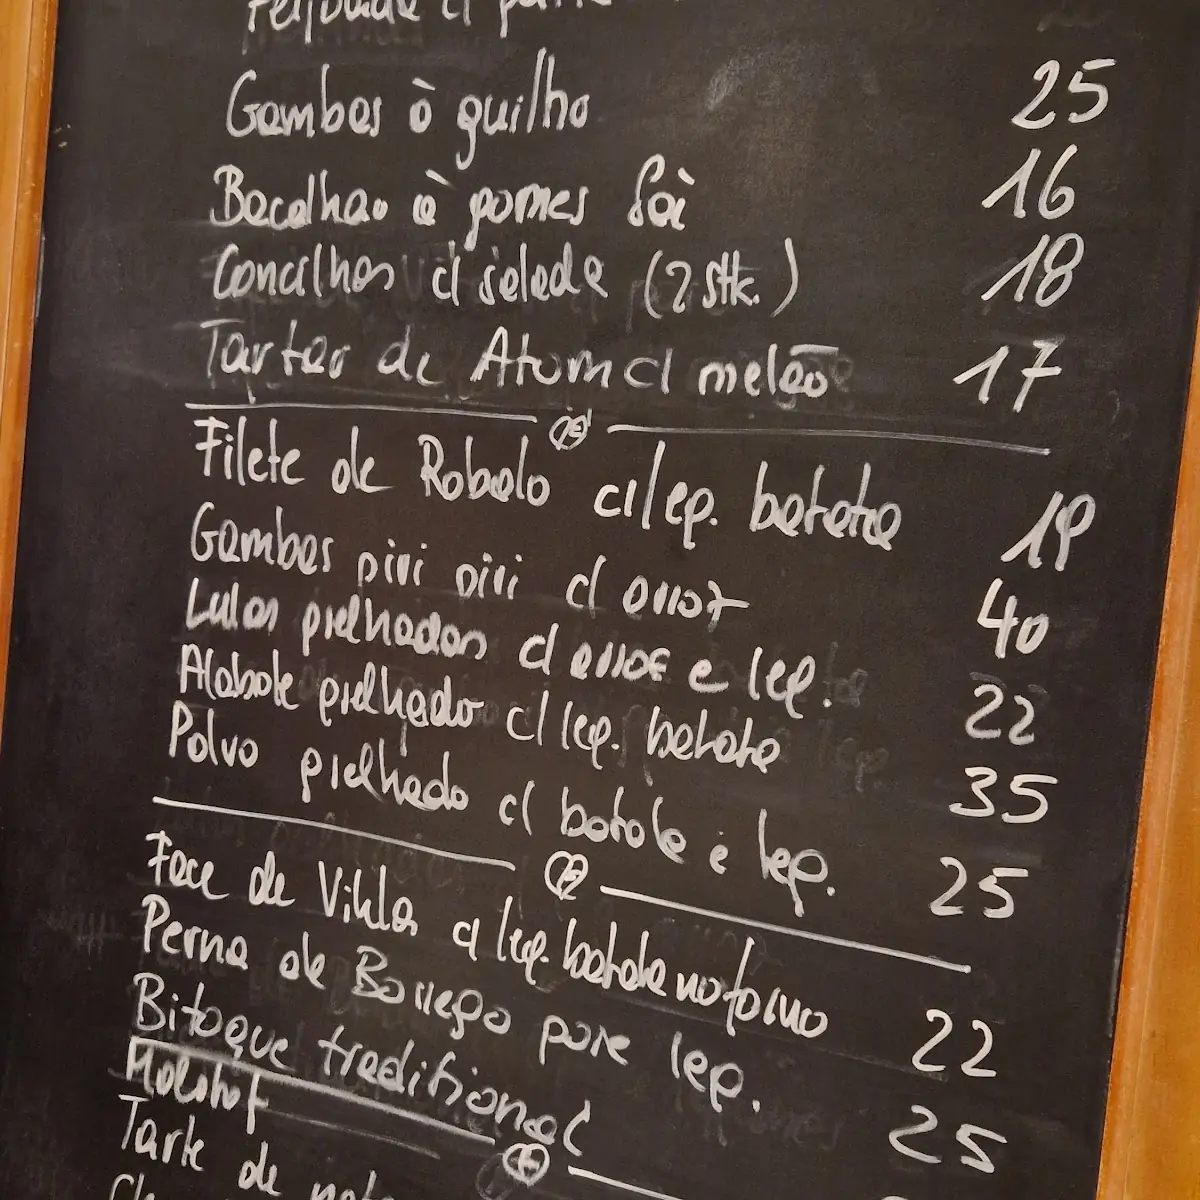 Gambas à guilho 25
Bacalhao à gomes Sà 16
Concilhas c/ salada (2 stk.) 18
Tartar de Atum c/ melão 17
Filete de Robalo c/ leg. batata 19
Gambas piri piri c/ arroz 40
Lulas grelhadas c/ arroz e leg. 22
Alabote grelhado c/ leg. batata 35
Polvo grelhado c/ batata e leg. 25
Face de Vitela c/ leg. batata no forno 22
Perna de Borrego pure leg. 25
Bitoque traditional
Molotof
Tarte de